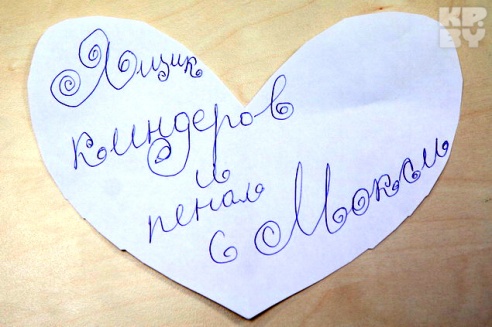 Ящик
киндеров
и
пенал
с Мокси
KP.
BY